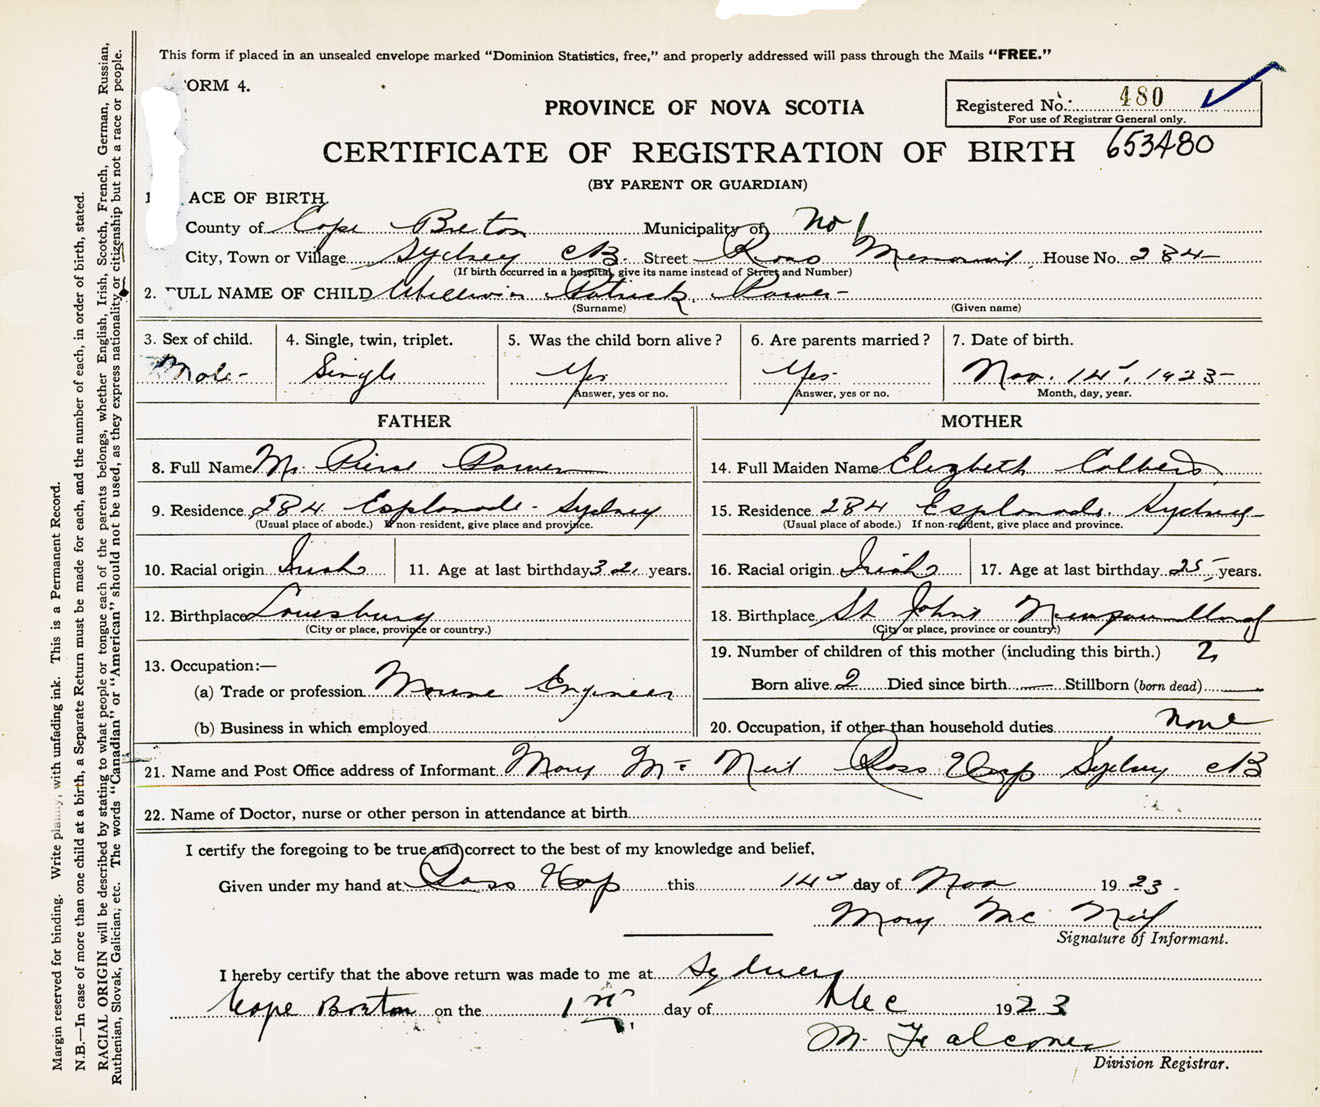 This form if placed in an unsealed envelope marked "Dominion Statistics, free," and properly addressed will pass through the Mails "FREE."
ORM 4.
Registered No. 480
For use of Registrar General only.
653480
PROVINCE OF NOVA SCOTIA
CERTIFICATE OF REGISTRATION OF BIRTH
(BY PARENT OR GUARDIAN)
1 ACE OF BIRTH.
County of Cape Breton Municipality of No 1
City, Town or Village Sydney CB. Street Ross Memorial House No. 284
(If birth occurred in a hospital, give its name instead of Street and Number)
2. FULL NAME OF CHILD William Patrick Power
(Surname) (Given name)
3. Sex of child. Male
4. Single, twin, triplet. Single
5. Was the child born alive? Yes
Answer, yes or no.
6. Are parents married? Yes
Answer, yes or no.
7. Date of birth. Nov. 14th, 1923
Month, day, year.
FATHER
8. Full Name Mr Power
9. Residence 284 Esplanade - Sydney
(Usual place of abode.) If non-resident, give place and province.
10. Racial origin Irish 11. Age at last birthday 32 years.
12. Birthplace Louisburg
(City or place, province or country.)
13. Occupation:—
(a) Trade or profession Engineer
(b) Business in which employed
MOTHER
14. Full Maiden Name Elizbeth
15. Residence 284 Esplanade, Sydney
(Usual place of abode.) If non-resident, give place and province.
16. Racial origin Irish 17. Age at last birthday 25 years.
18. Birthplace St Johns
(City or place, province or country.)
19. Number of children of this mother (including this birth.) 2
Born alive 2 Died since birth — Stillborn (born dead) —
20. Occupation, if other than household duties none
21. Name and Post Office address of Informant Mary Mc Neil Ross Hosp Sydney CB
22. Name of Doctor, nurse or other person in attendance at birth
I certify the foregoing to be true and correct to the best of my knowledge and belief,
Given under my hand at Ross Hosp this 14th day of Nov 1923
Mary Mc Neil
Signature of Informant.
I hereby certify that the above return was made to me at Sydney
Cape Breton on the 1st day of Dec 1923
M. Falconer
Division Registrar.
Margin reserved for binding. Write plainly, with unfading ink. This is a Permanent Record.
N.B.—In case of more than one child at a birth, a Separate Return must be made for each, and the number of each, in order of birth, stated.
RACIAL ORIGIN will be described by stating to what people or tongue each of the parents belongs, whether English, Irish, Scotch, French, German, Russian,
Ruthenian, Slovak, Galician, etc. The words "Canadian" or "American" should not be used, as they express nationality or citizenship but not a race or people.